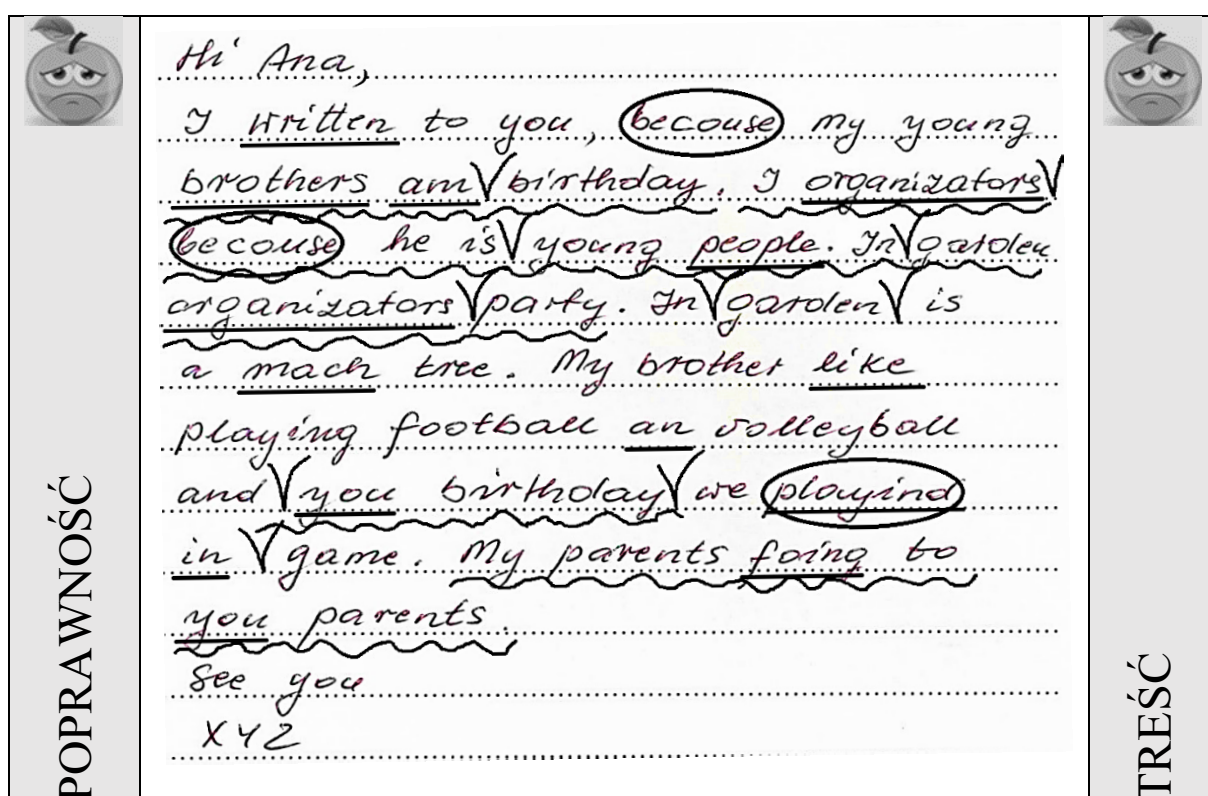 POPRAWNOŚĆ
Hi Ana,
I written to you, becouse my young
brothers am birthday. I organizators
becouse he is young people. In garden
organizators party. In garden is
a mach tree. My brother like
playing football an volleyball
and you birthday we playind
in game. My parents foing to
you parents.
See you
XYZ
TREŚĆ